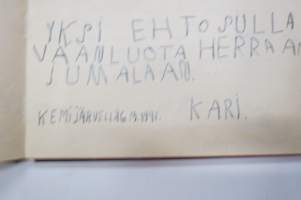 YKSI EHTO SULLA
VAAN LUOTA HERRAAN
JUMALAAN.
KEMIJÄRVELLÄ 6.9.1941. KARI.